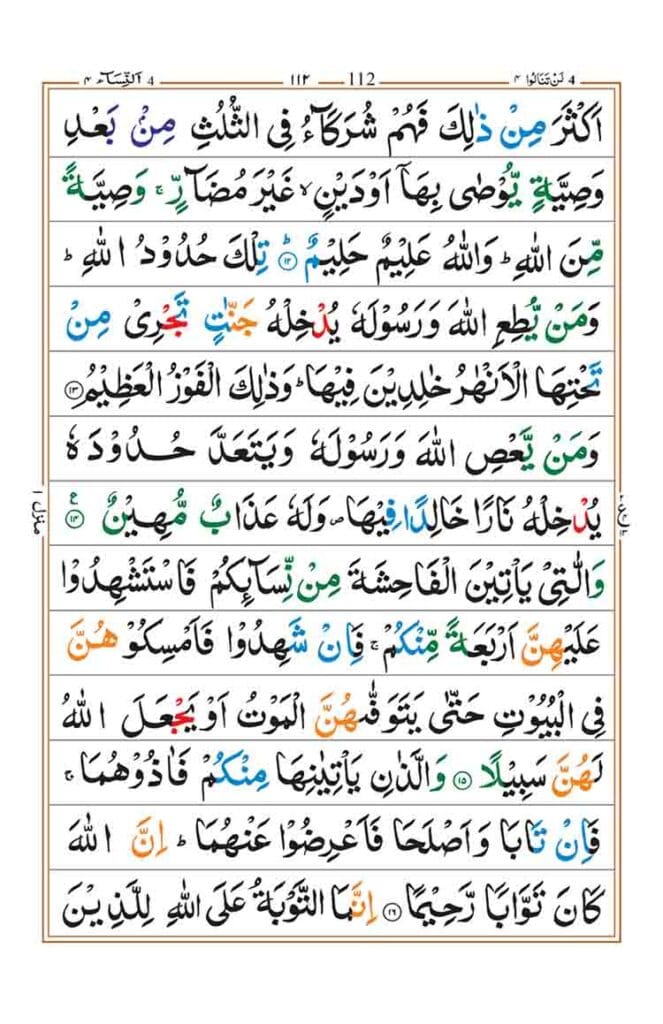 4 لَنْ تَنَالُوا ۴ 112 ۱۱۲ 4 اَلنِّسَآء ۴
اَكْثَرَ مِنْ ذٰلِكَ فَهُمْ شُرَكَآءُ فِى الثُّلُثِ مِنْۢ بَعْدِ
وَصِيَّةٍ يُّوْصٰى بِهَاۤ اَوْ دَيْنٍ ۙ غَيْرَ مُضَآرٍّ ۚ وَصِيَّةً
مِّنَ اللّٰهِ ؕ وَاللّٰهُ عَلِيْمٌ حَلِيْمٌ ؕ ۱۲ تِلْكَ حُدُوْدُ اللّٰهِ ؕ
وَمَنْ يُّطِعِ اللّٰهَ وَرَسُوْلَهٗ يُدْخِلْهُ جَنّٰتٍ تَجْرِىْ مِنْ
تَحْتِهَا الْاَنْهٰرُ خٰلِدِيْنَ فِيْهَا ؕ وَذٰلِكَ الْفَوْزُ الْعَظِيْمُ ۱۳
وَمَنْ يَّعْصِ اللّٰهَ وَرَسُوْلَهٗ وَيَتَعَدَّ حُدُوْدَهٗ
يُدْخِلْهُ نَارًا خَالِدًا فِيْهَا ۪ وَلَهٗ عَذَابٌ مُّهِيْنٌ ۱۴ ع
منزل ۱
وَالّٰتِىْ يَاْتِيْنَ الْفَاحِشَةَ مِنْ نِّسَآئِكُمْ فَاسْتَشْهِدُوْا
عَلَيْهِنَّ اَرْبَعَةً مِّنْكُمْ ۚ فَاِنْ شَهِدُوْا فَاَمْسِكُوْهُنَّ
فِى الْبُيُوْتِ حَتّٰى يَتَوَفّٰٮهُنَّ الْمَوْتُ اَوْ يَجْعَلَ اللّٰهُ
لَهُنَّ سَبِيْلًا ۱۵ وَالَّذٰنِ يَاْتِيٰنِهَا مِنْكُمْ فَاٰذُوْهُمَا ۚ
فَاِنْ تَابَا وَاَصْلَحَا فَاَعْرِضُوْا عَنْهُمَا ؕ اِنَّ اللّٰهَ
كَانَ تَوَّابًا رَّحِيْمًا ۱۶ اِنَّمَا التَّوْبَةُ عَلَى اللّٰهِ لِلَّذِيْنَ